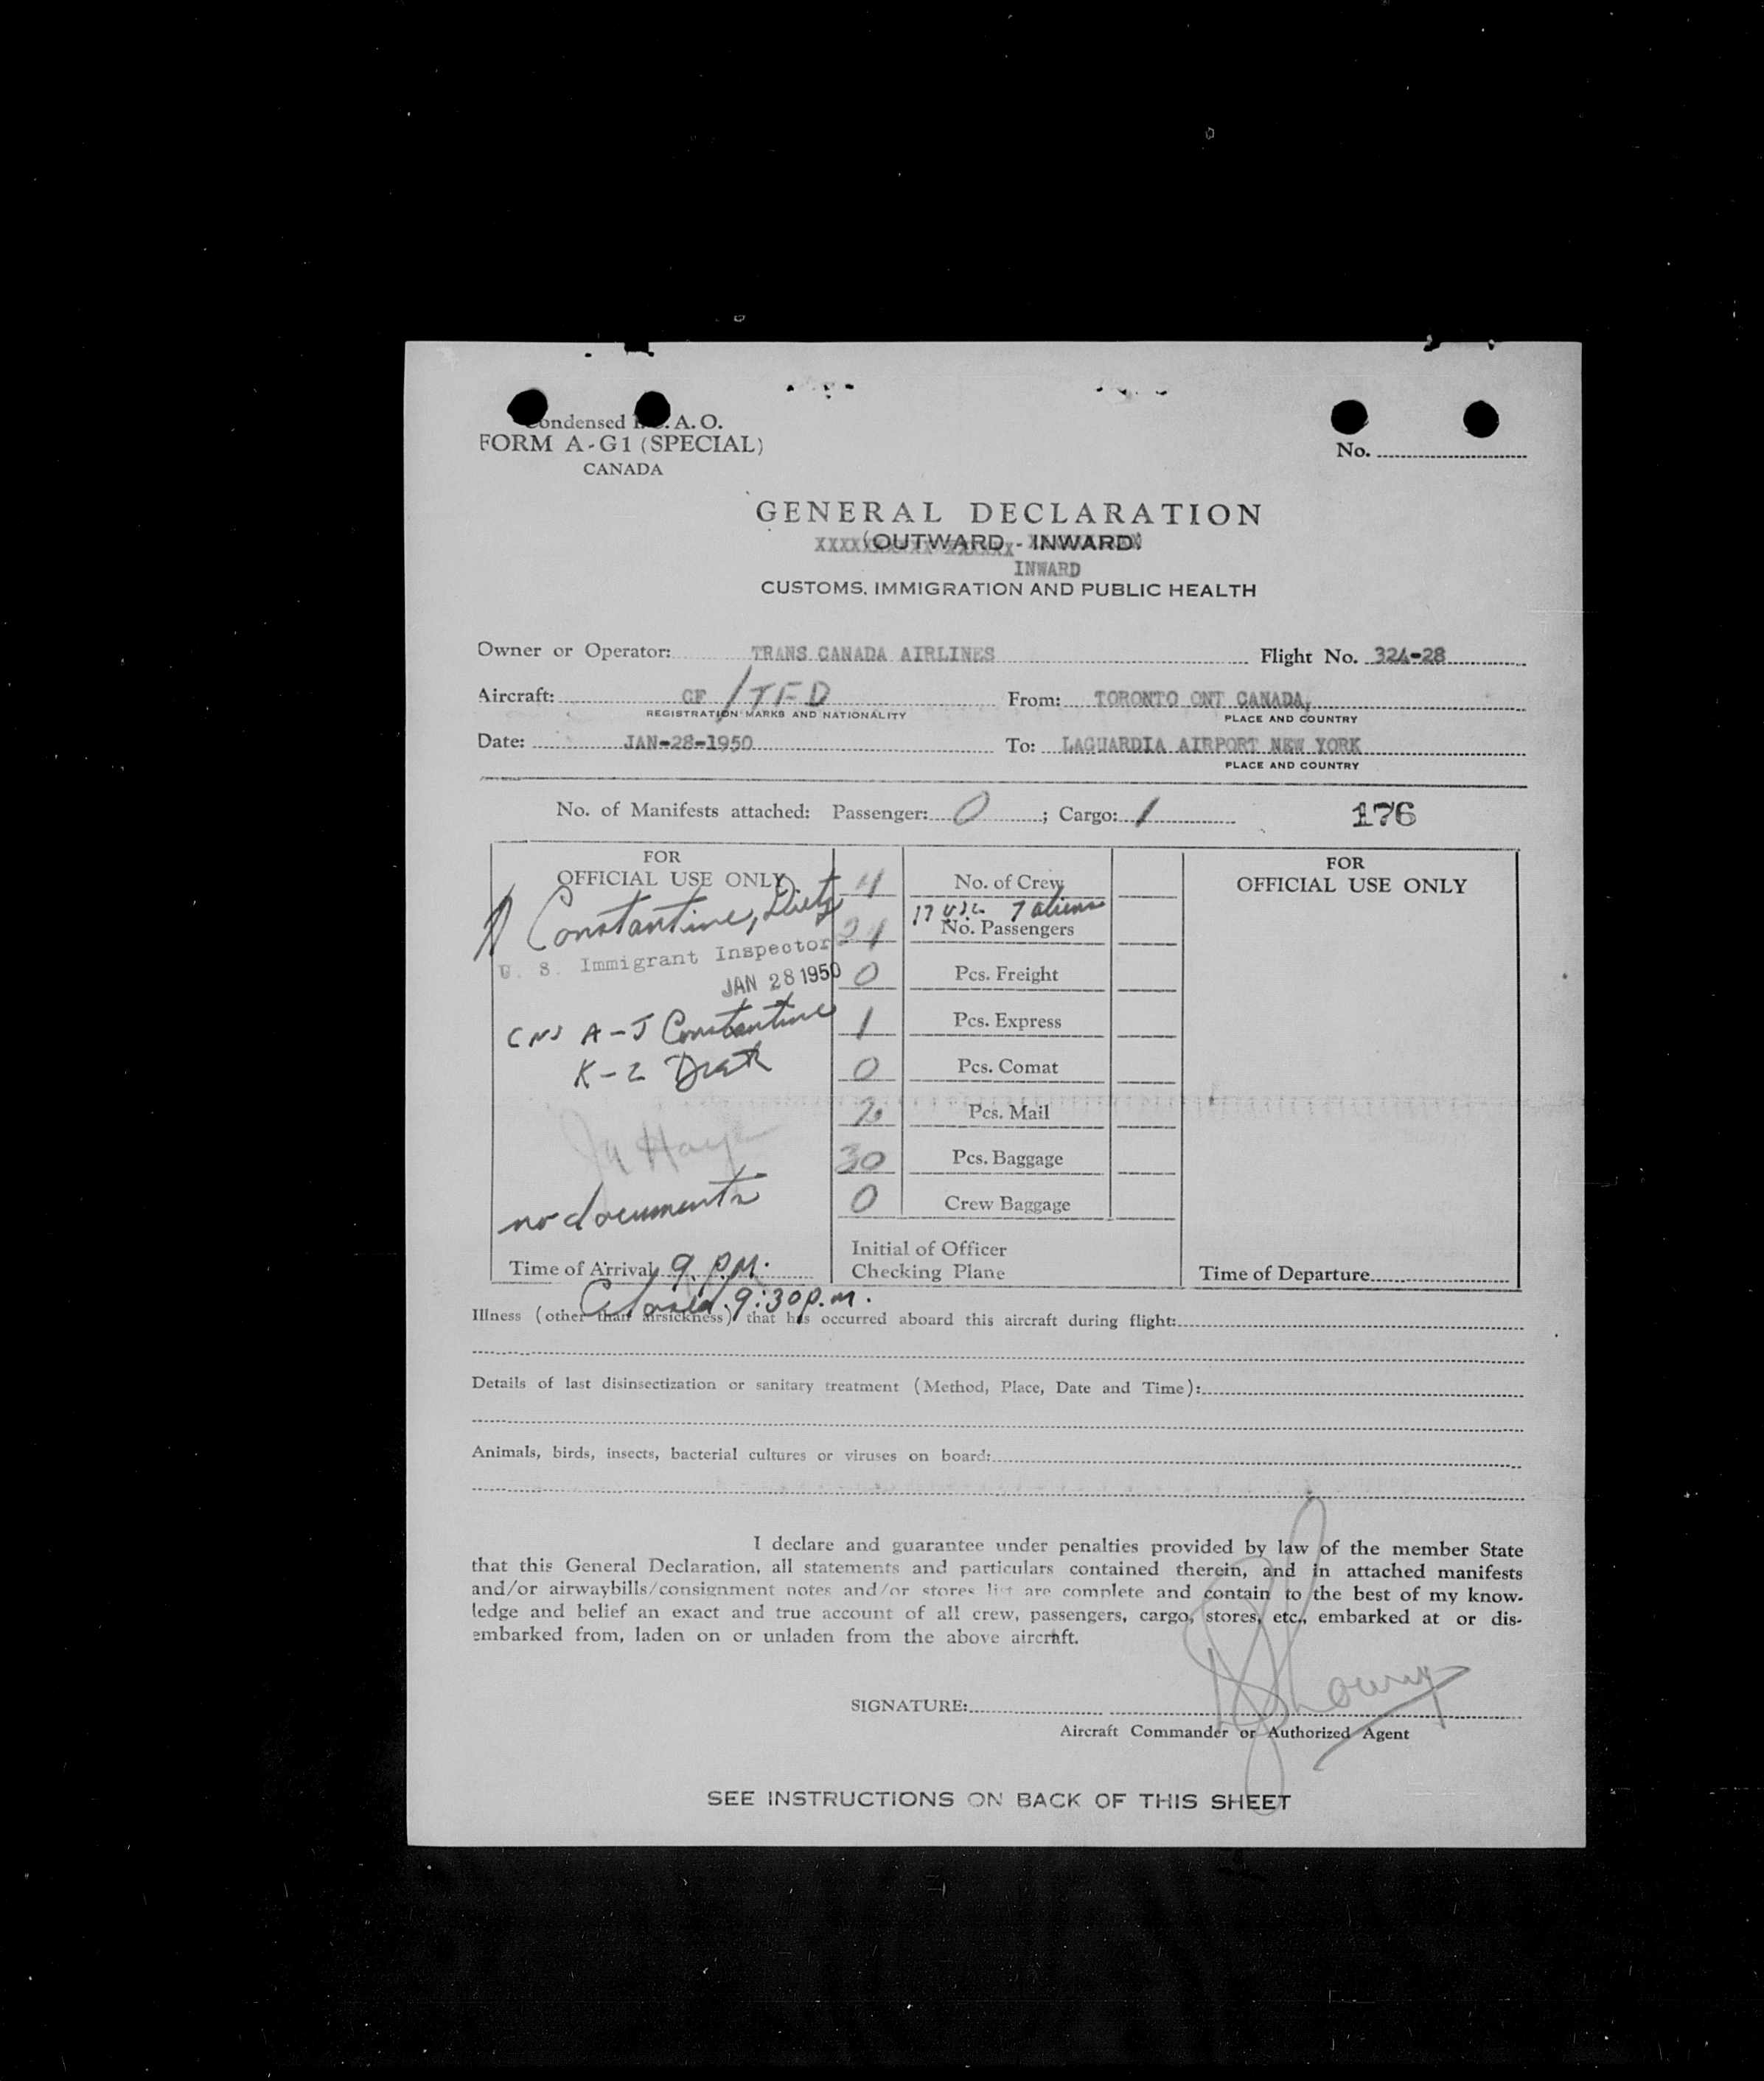 Condensed I.C.A.O.
FORM A-G1 (SPECIAL)
CANADA
No.
GENERAL DECLARATION
(OUTWARD - INWARD)
INWARD
CUSTOMS, IMMIGRATION AND PUBLIC HEALTH
Owner or Operator: TRANS CANADA AIRLINES Flight No. 324-28
Aircraft: CF / TFD From: TORONTO ONT CANADA,
REGISTRATION MARKS AND NATIONALITY PLACE AND COUNTRY
Date: JAN-28-1950 To: LAGUARDIA AIRPORT NEW YORK
PLACE AND COUNTRY
No. of Manifests attached: Passenger: 0 ; Cargo: 1 176
FOR
OFFICIAL USE ONLY
Constantine,
U. S. Immigrant Inspector
JAN 28 1950
A-J Constantine
no documents
Time of Arrival 9 P.M.
9:30 p.m.
4 No. of Crew
17 USC 7 aliens
24 No. Passengers
0 Pcs. Freight
1 Pcs. Express
0 Pcs. Comat
2 Pcs. Mail
30 Pcs. Baggage
0 Crew Baggage
Initial of Officer
Checking Plane
FOR
OFFICIAL USE ONLY
Time of Departure
Illness (other than airsickness) that has occurred aboard this aircraft during flight:
Details of last disinsectization or sanitary treatment (Method, Place, Date and Time):
Animals, birds, insects, bacterial cultures or viruses on board:
I declare and guarantee under penalties provided by law of the member State
that this General Declaration, all statements and particulars contained therein, and in attached manifests
and/or airwaybills/consignment notes and/or stores list are complete and contain to the best of my know-
ledge and belief an exact and true account of all crew, passengers, cargo, stores, etc., embarked at or dis-
embarked from, laden on or unladen from the above aircraft.
SIGNATURE:
Aircraft Commander or Authorized Agent
SEE INSTRUCTIONS ON BACK OF THIS SHEET